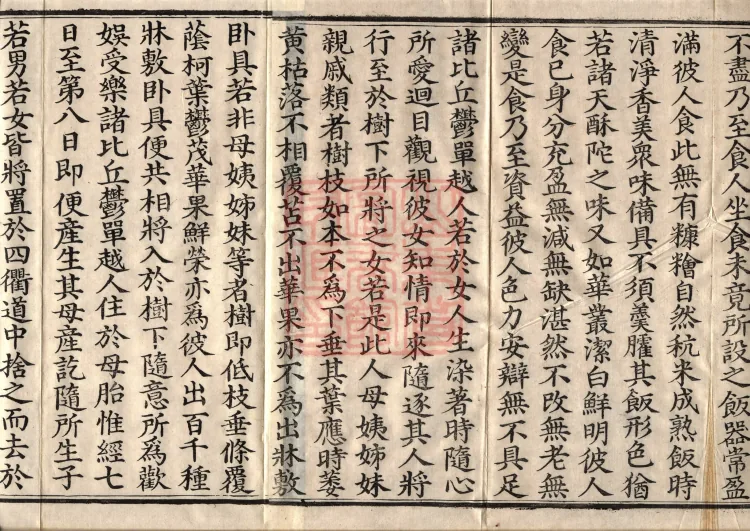 不盡乃至食人坐食未竟所設之飯器常盈
滿彼人食此無有糠糩自然秔米成熟飯時
清淨香美衆味備具不須羹臛其飯形色猶
若諸天酥陀之味又如華叢潔白鮮明彼人
食已身分充盈無減無缺湛然不改無老無
變是食乃至資益彼人色力安辯無不具足
諸比丘鬱單越人若於女人生染著時隨心
所愛迴目觀視彼女知情即來隨逐其人將
行至於樹下所將之女若是此人母姨姊妹
親戚類者樹枝如本不為下垂其葉應時萎
黄枯落不相覆苫不出華果亦不為出牀敷
卧具若非母姨姊妹等者樹即低枝垂條覆
蔭柯葉鬱茂華果鮮榮亦為彼人出百千種
牀敷卧具便共相將入於樹下隨意所為歡
娛受樂諸比丘鬱單越人住於母胎惟經七
日至第八日即便產生其母產訖隨所生子
若男若女皆將置於四衢道中捨之而去於